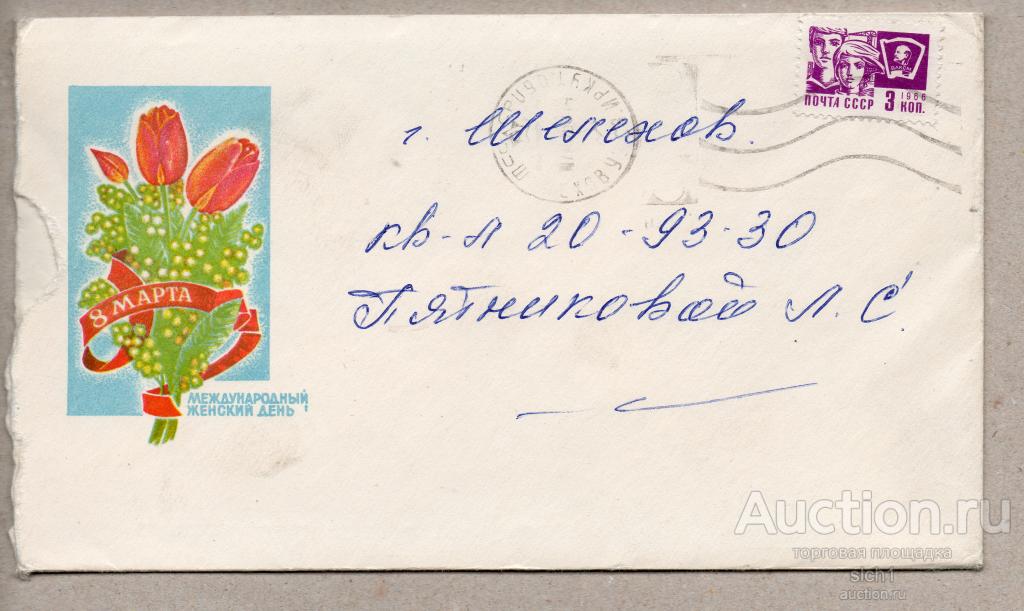 ПОЧТА СССР 3 КОП.
1966
ВЛКСМ
г. Шелехов.
кв-л 20-93-30
Пятниковой Л. С.
8 МАРТА
МЕЖДУНАРОДНЫЙ
ЖЕНСКИЙ ДЕНЬ
Auction.ru
торговая площадка
slch1
auction.ru